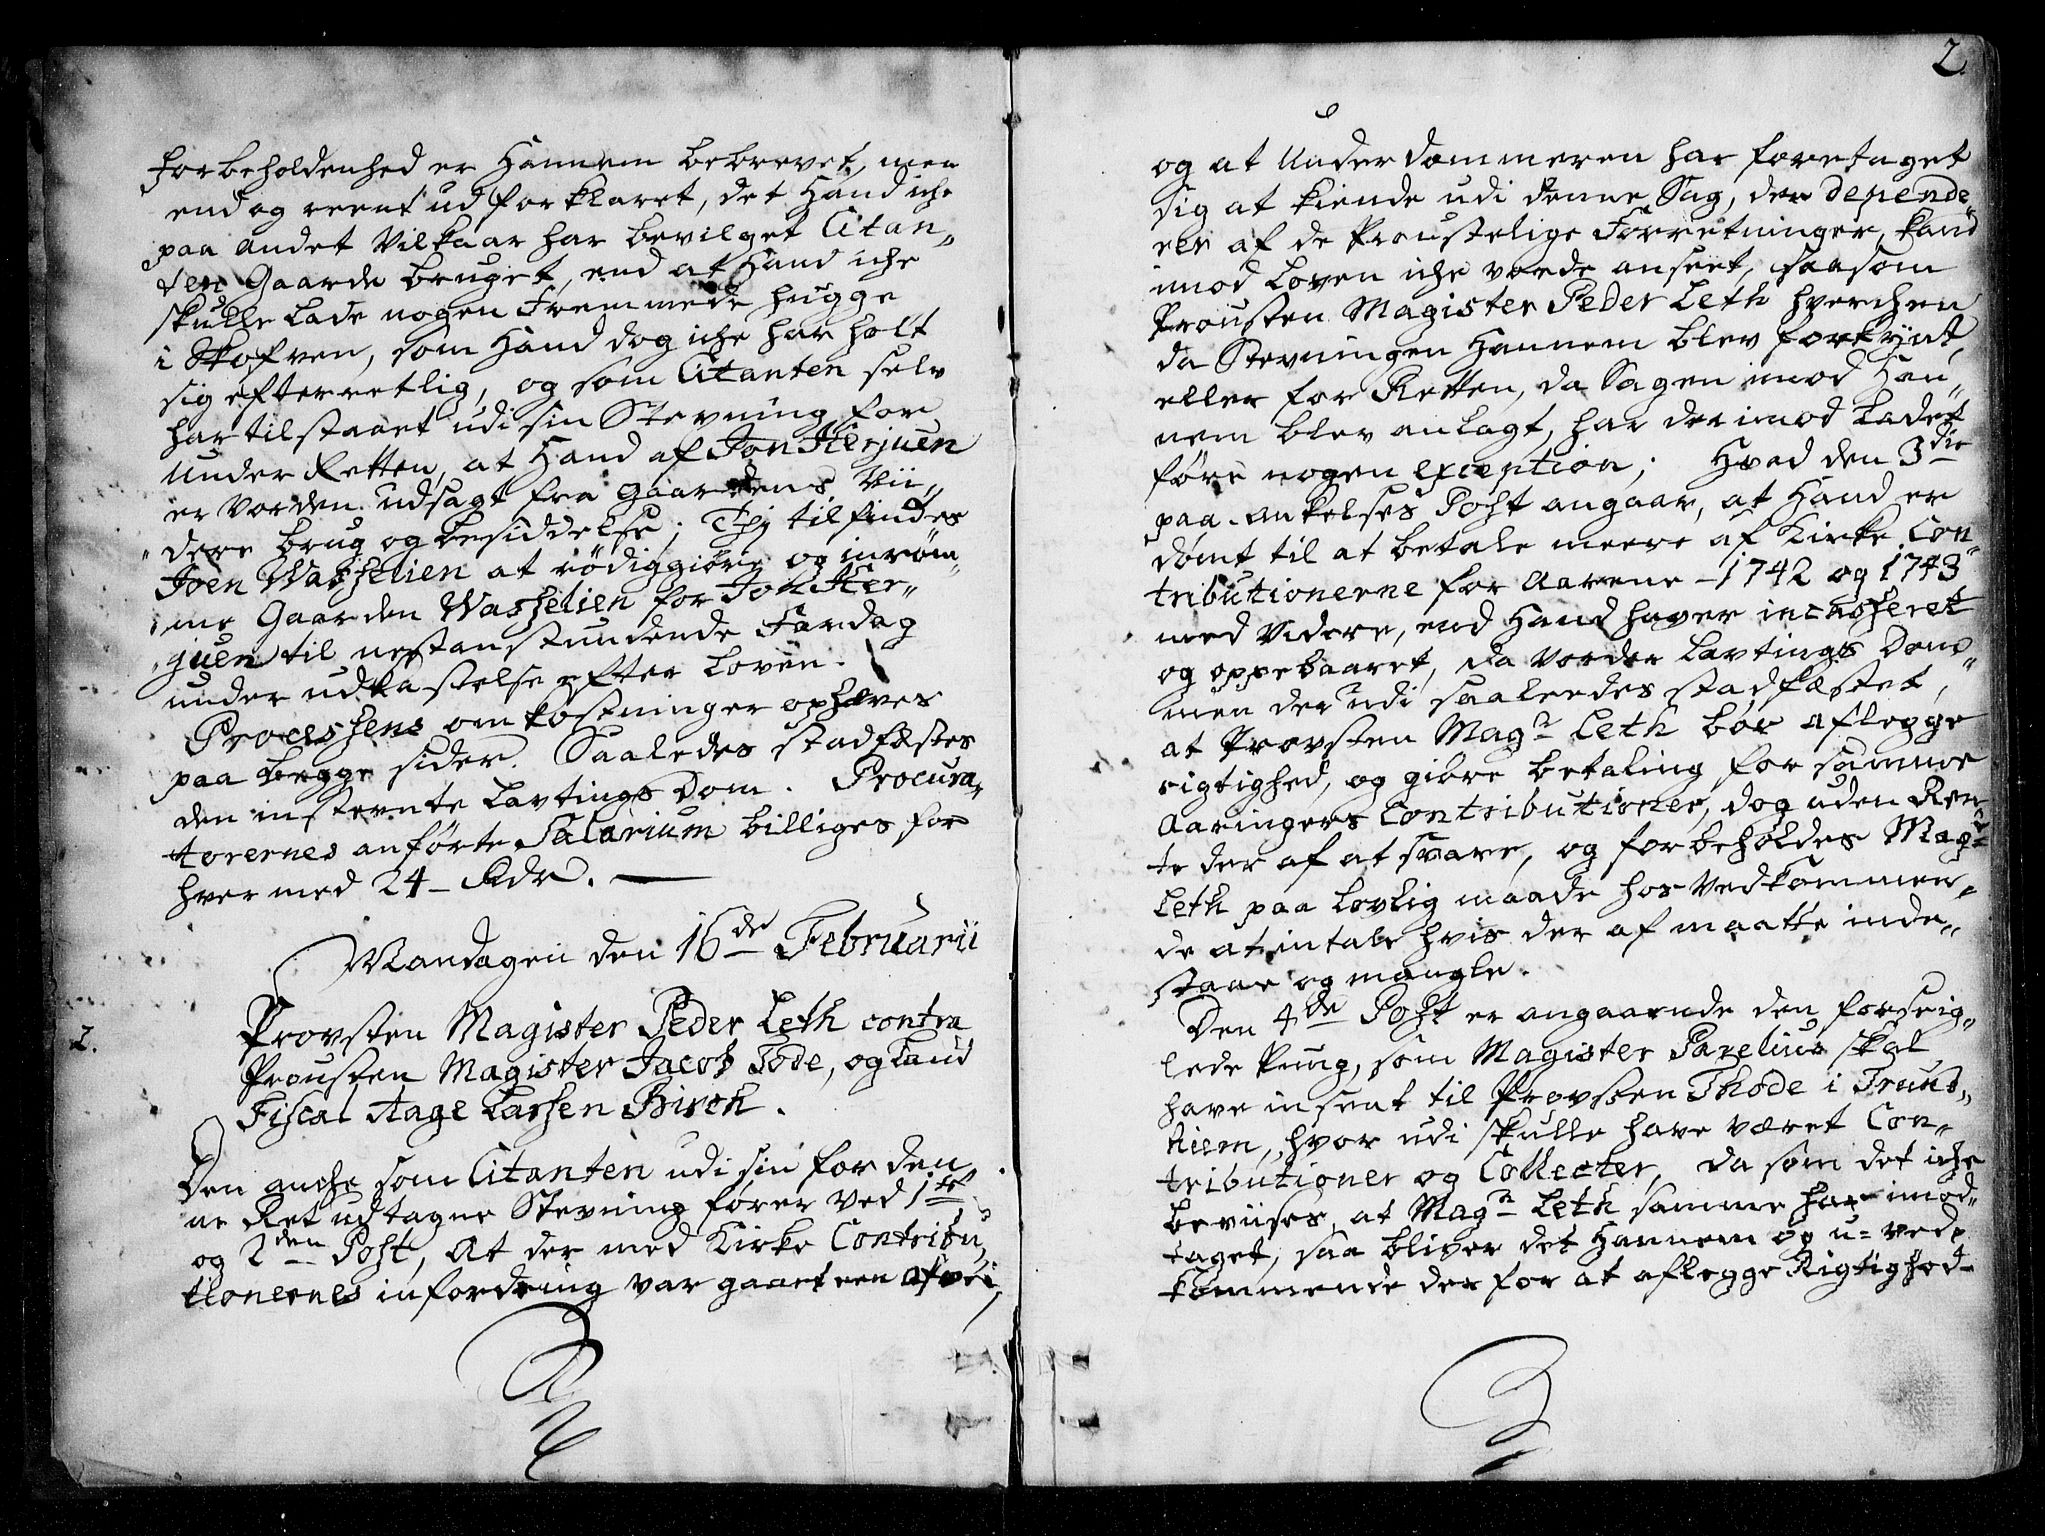 forbeholdenhed er Hannem bebrevet, men
end og reent ud forklaret, det Hand iche
paa andet Vilkaar har bevilget Citan„
ten Gaarden bruget, end at Hand iche
skulle lade nogen Fremmede hugge
i Skofven, som Hand dog iche har holt
sig efterretlig, og som Citanten selv
har tilstaaet udi sin Stevning for
Under Retten, at Hand af Jon Herjuen
er vorden udsagt fra Gaardens vii„
„dere brug og besiddelse; Thj tilfindes
Joen Wasselien at rödiggiöre og inröm„
„me Gaarden Wasselien for Jon Her„
„juen til nestanstundende Fardag
under udkastelse efter Loven.
Processens omkostninger ophæves
paa begge sider. Saaledes stadfæstes
den instevnte Lavtings Dom. Procura„
torernes anførte Salarium billiges for
hver med 24 - Rdr.
Mandagen den 16de Februarii
2. Provsten Magister Peder Leth contra
Prousten Magister Jacob Tode, og Land
Fiscal Aage Lassen Birch.
Den anche som Citanten udi sin for den„
ne Ret udtagne Stevning fører ved 1ste
og 2den Post, At der med Kirke Contribu„
tionernes infordring var gaaet een afvei,
2
og at Underdommeren har foretaget
sig at kiende udi denne Sag, der depende„
rer af de Proustelige Forretninger, kand
imod Loven iche vorde anseet, saasom
Prousten Magister Peder Leth hverchen
da Stevningen Hannem blev forkynt,
eller for Retten, da Sagen imod Han„
nem blev anlagt, har derimod ladet
føre nogen exception; Hvad den 3die
paa-ankelses Post angaar, at Hand er
dømt til at betale meere af Kirke Con„
tributionerne for Aarene - 1742 og 1743
med Videre, end Hand haver incasseret
og oppebaaret, da vorder Lavtings Dom„
men der udi saaleedes stadfæstet,
at Provsten Magr Leth bør aflegge
rigtighed, og giøre betaling for samme
Aaringers Contributioner, dog uden Ren„
te der af at svare, og forbeholdes Magr
Leth paa lovlig maade hos vedkommen„
de at intale hvis der af maatte inde„
staae og mangle.
Den 4de Post er angaaende den forseig„
lede Pung, som Magister Parelius skal
have insent til Provsten Thode i Trund„
hiem, hvor udi skulle have været Con„
tributioner og Collecter, da som det iche
beviises, at Magr Leth samme har imod„
taget, saa bliver det Hannem og u= ved„
kommende der for at aflegge Rigtighed-